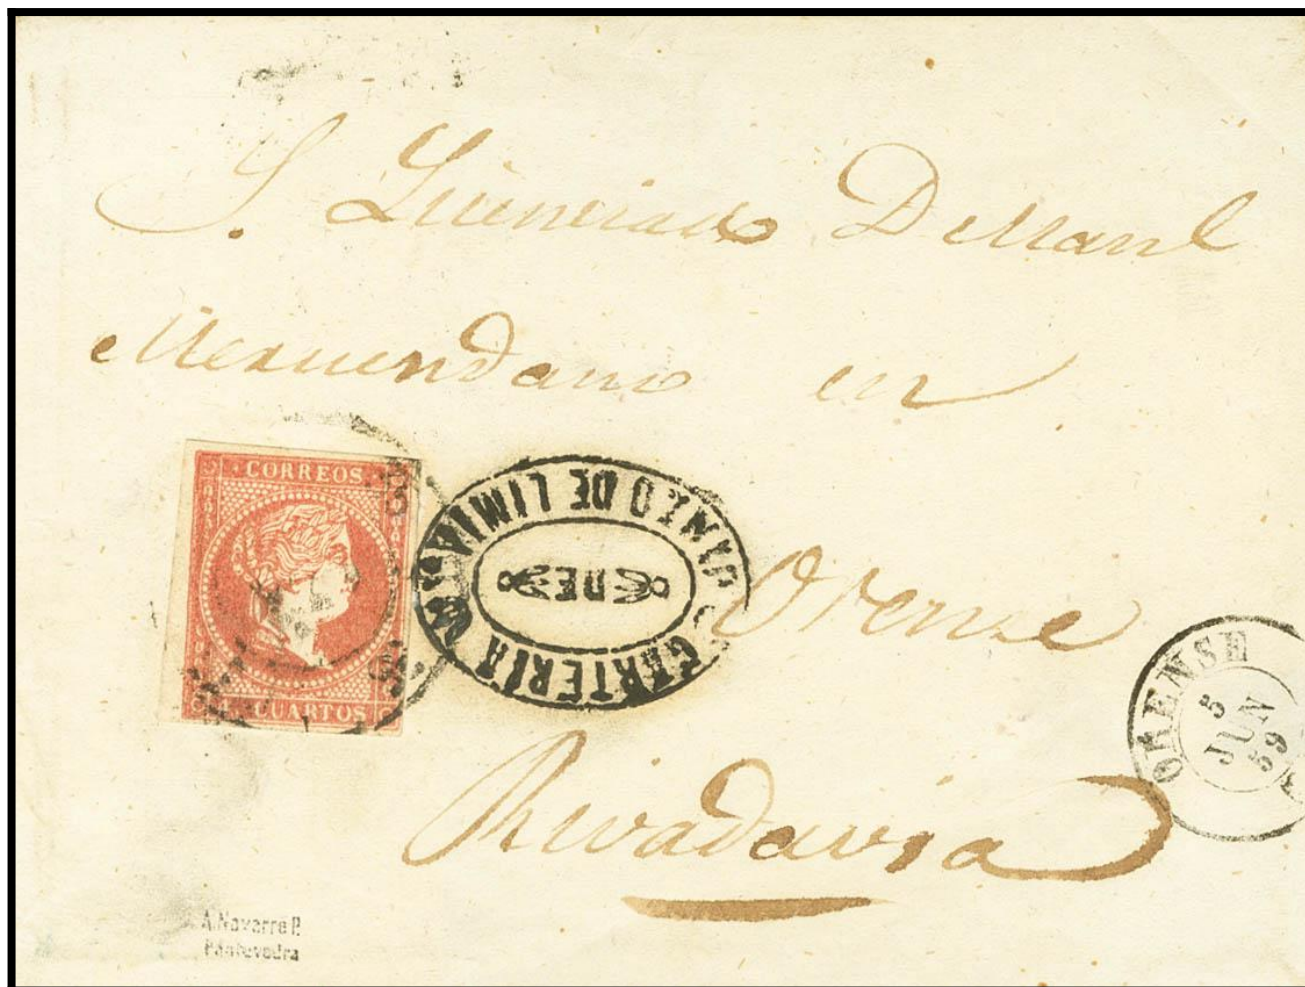 S. Licenciado D Manl
Meruendano en
CORREOS
CUARTOS
CARTERIA
DE
GINZO DE LIMIA
Orense
ORENSE
5
JUN
59
Rivadavia
A.Navarro P.
Pontevedra